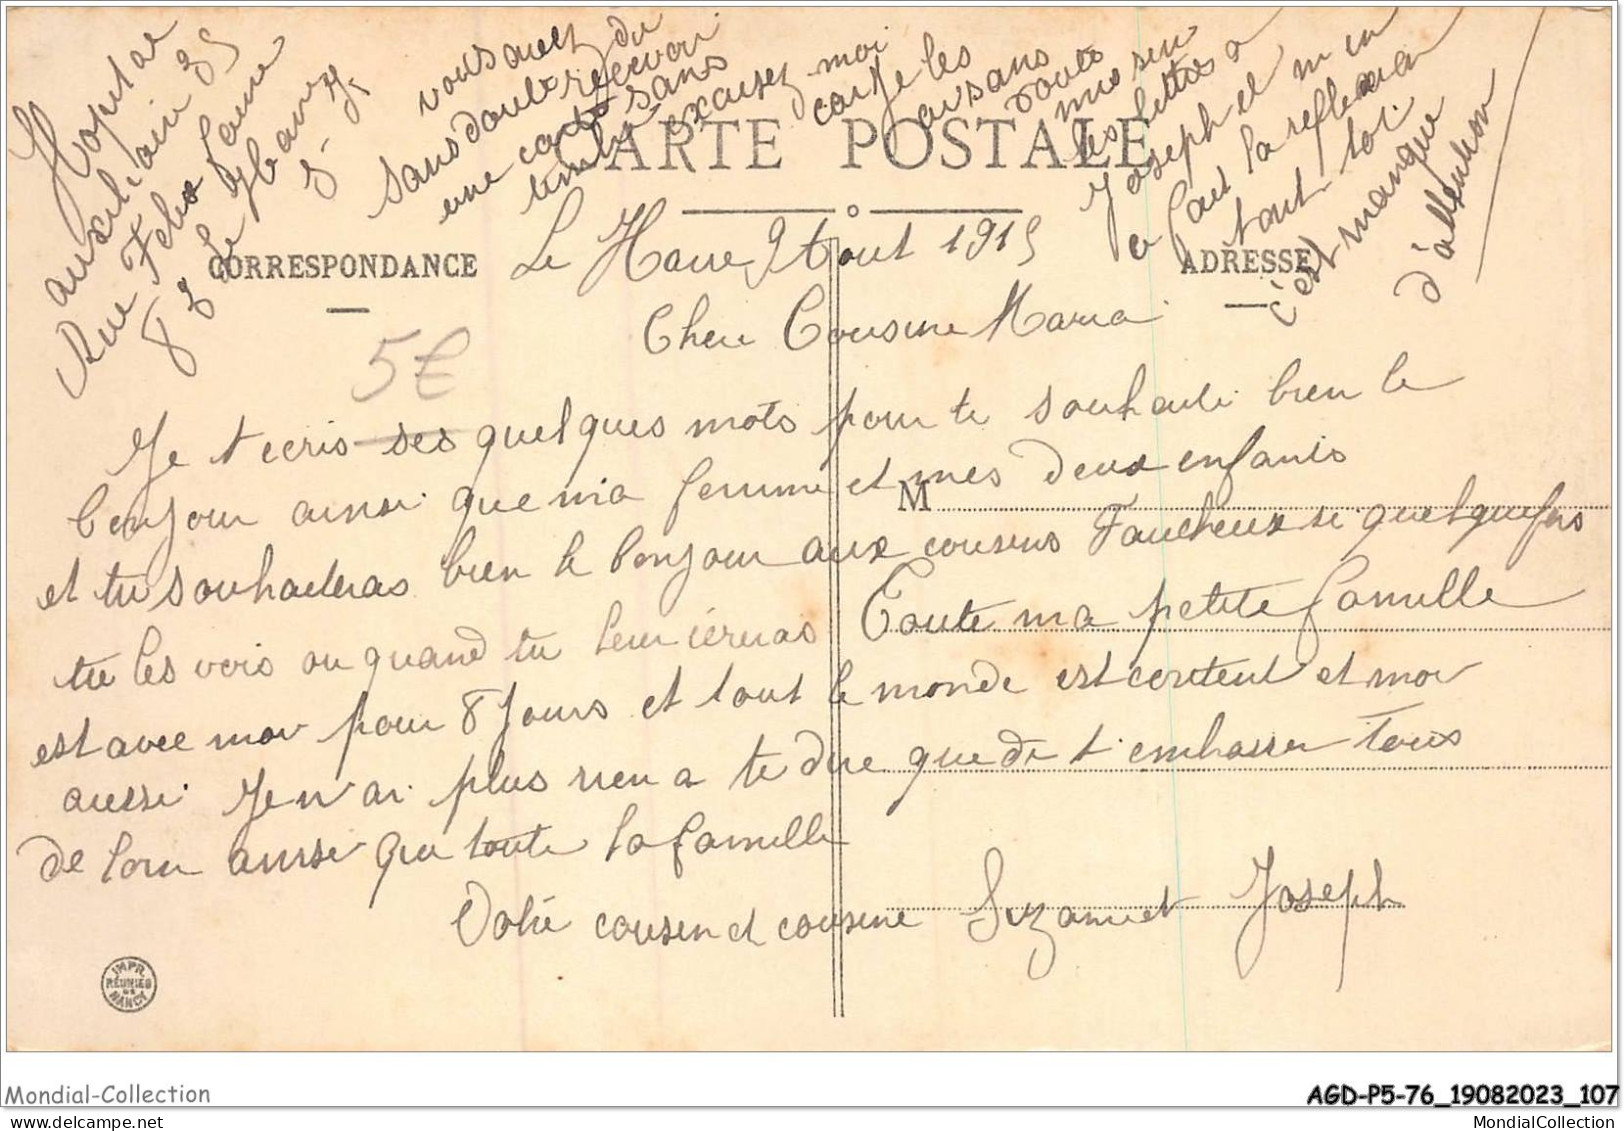 Hopital
auxiliaire 35
Rue Felix Faure
83 Le Havre
S. I.
vous avez du
sans doute recevoir
une carte sans
timbre excusez moi
car je les
avsans
doute
mis sur
les lettres a
Joseph et m en
a fait la reflexion
tout
c'est manque
d'attention
CARTE POSTALE
CORRESPONDANCE
ADRESSE
Le Havre 9 Aout 1915
5€
Chere Cousine Maria
Je t ecris ses quelques mots pour te souhaite bien le
bonjour ainsi que ma femme et mes deux enfants
M
et tu souhaiteras bien le bonjour aux cousins Faucheux si quelquefois
tu les vois ou quand tu leur iceriras Toute ma petite famille
est avec moi pour 8 jours et tout le monde est content et moi
aussi Je n ai plus rien a te dire que de t embasser tous
de loin ainsi que toute la famille
Votre cousin et cousine Suzanne et Joseph
IMPR.
RÉUNIES
DE
NANCY
Mondial-Collection
AGD-P5-76_19082023_107
MondialCollection
MondialCollection.com